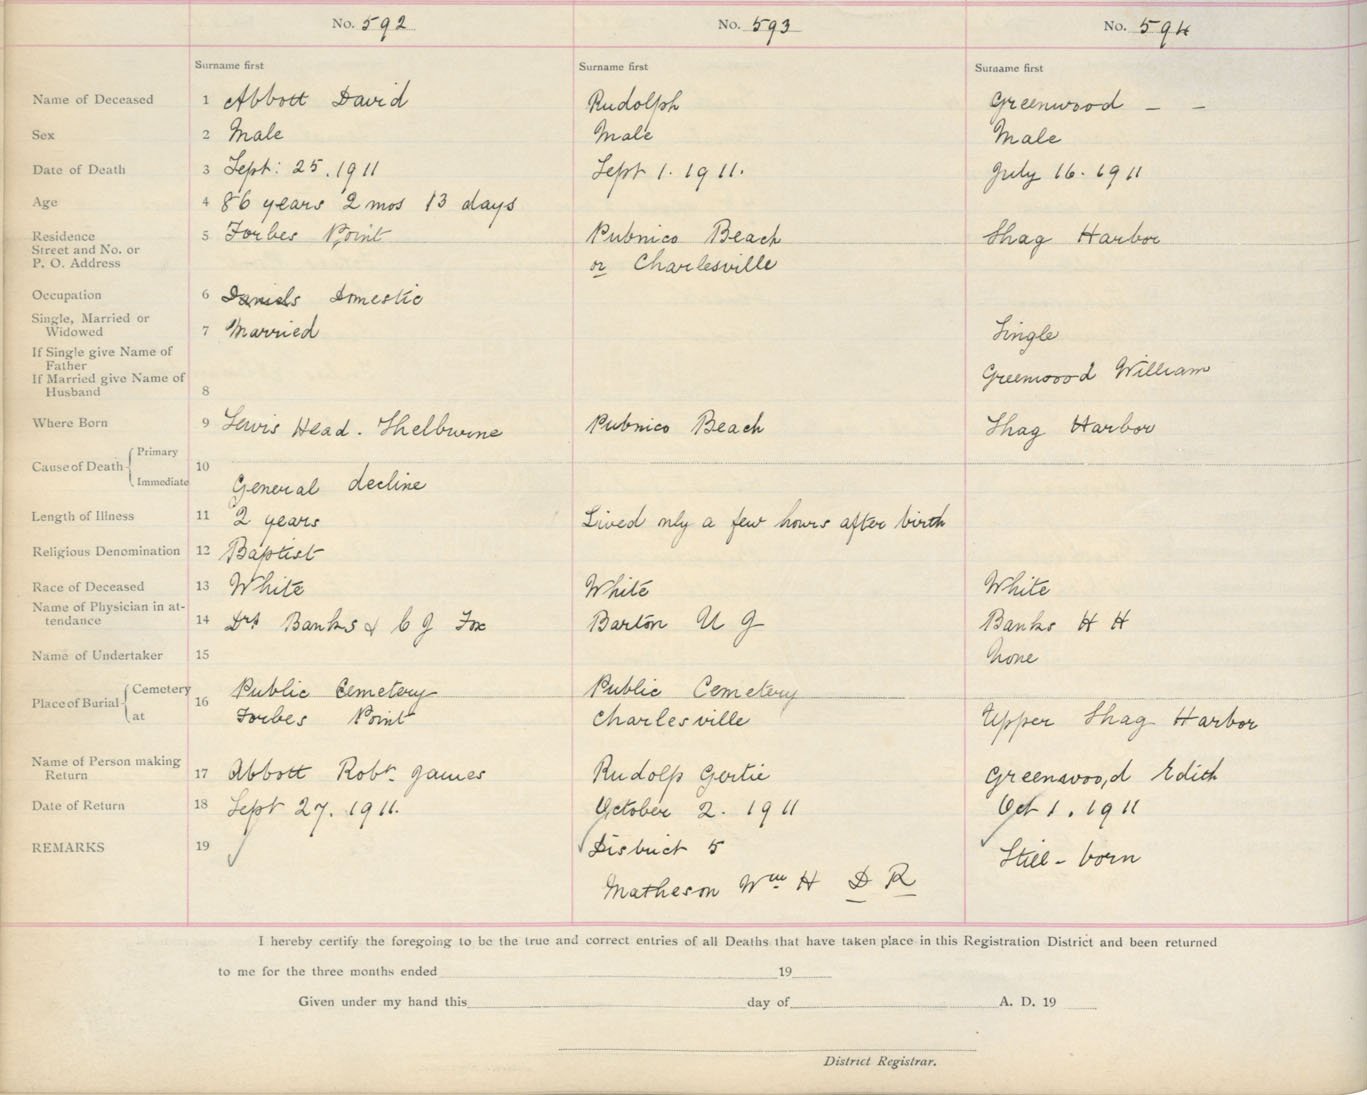 No. 592 No. 593 No. 594
Surname first Surname first Surname first
Name of Deceased 1 Abbott David Rudolph Greenwood – –
Sex 2 Male Male Male
Date of Death 3 Sept: 25. 1911 Sept 1. 1911. July 16. 1911
Age 4 86 years 2 mos 13 days
Residence 5 Forbes Point Pubnico Beach Shag Harbor
Street and No. or
P. O. Address or Charlesville
Occupation 6 Domestic
Single, Married or
Widowed 7 Married Single
If Single give Name of
Father
If Married give Name of Greenwood William
Husband 8
Where Born 9 Lewis Head. Shelburne Pubnico Beach Shag Harbor
Primary
Cause of Death 10
Immediate General decline
Length of Illness 11 2 years Lived only a few hours after birth
Religious Denomination 12 Baptist
Race of Deceased 13 White White White
Name of Physician in at-
tendance 14 Drs Banks & C J Fox Barton U J Banks H H
Name of Undertaker 15 None
Cemetery Public Cemetery Public Cemetery
Place of Burial 16
at Forbes Point Charlesville Upper Shag Harbor
Name of Person making
Return 17 Abbott Robt. James Rudolp Gertie Greenwood Edith
Date of Return 18 Sept 27. 1911. October 2. 1911 Oct 1. 1911
REMARKS 19 District 5 Still-born
Matheson Wm H D R
I hereby certify the foregoing to be the true and correct entries of all Deaths that have taken place in this Registration District and been returned
to me for the three months ended 19
Given under my hand this day of A. D. 19
District Registrar.